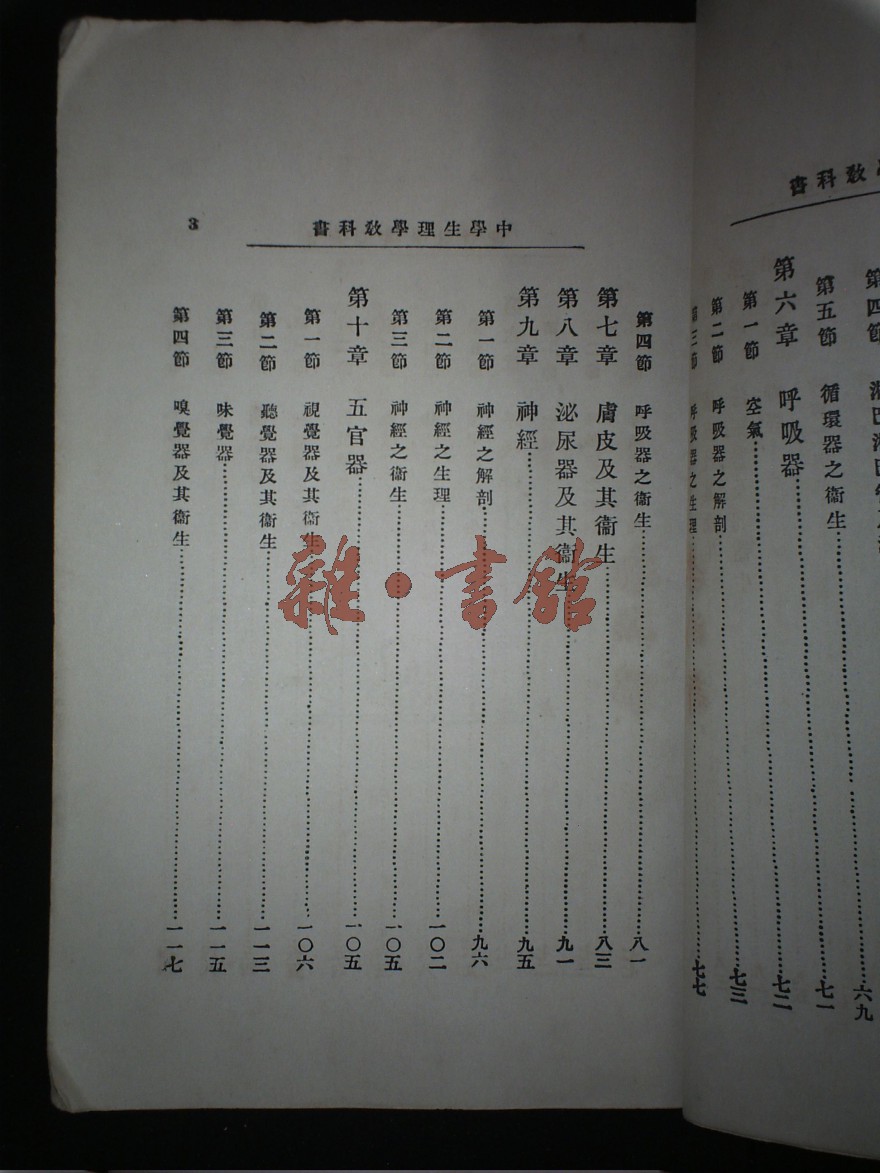 書科教
第四節
第五節 循環器之衞生 七一
六九
第六章 呼吸器 七二
第一節 空氣
第二節 呼吸器之解剖 七三
第三節 呼吸器之生理 七七
3
中學生理學教科書
第四節 呼吸器之衞生 八一
第七章 膚皮及其衞生 八三
第八章 泌尿器及其衞生 九一
第九章 神經 九五
第一節 神經之解剖 九六
第二節 神經之生理 一〇二
第三節 神經之衞生 一〇五
第十章 五官器 一〇五
第一節 視覺器及其衞生 一〇六
第二節 聽覺器及其衞生 一一三
第三節 味覺器 一一五
第四節 嗅覺器及其衞生 一一七
雜·書館